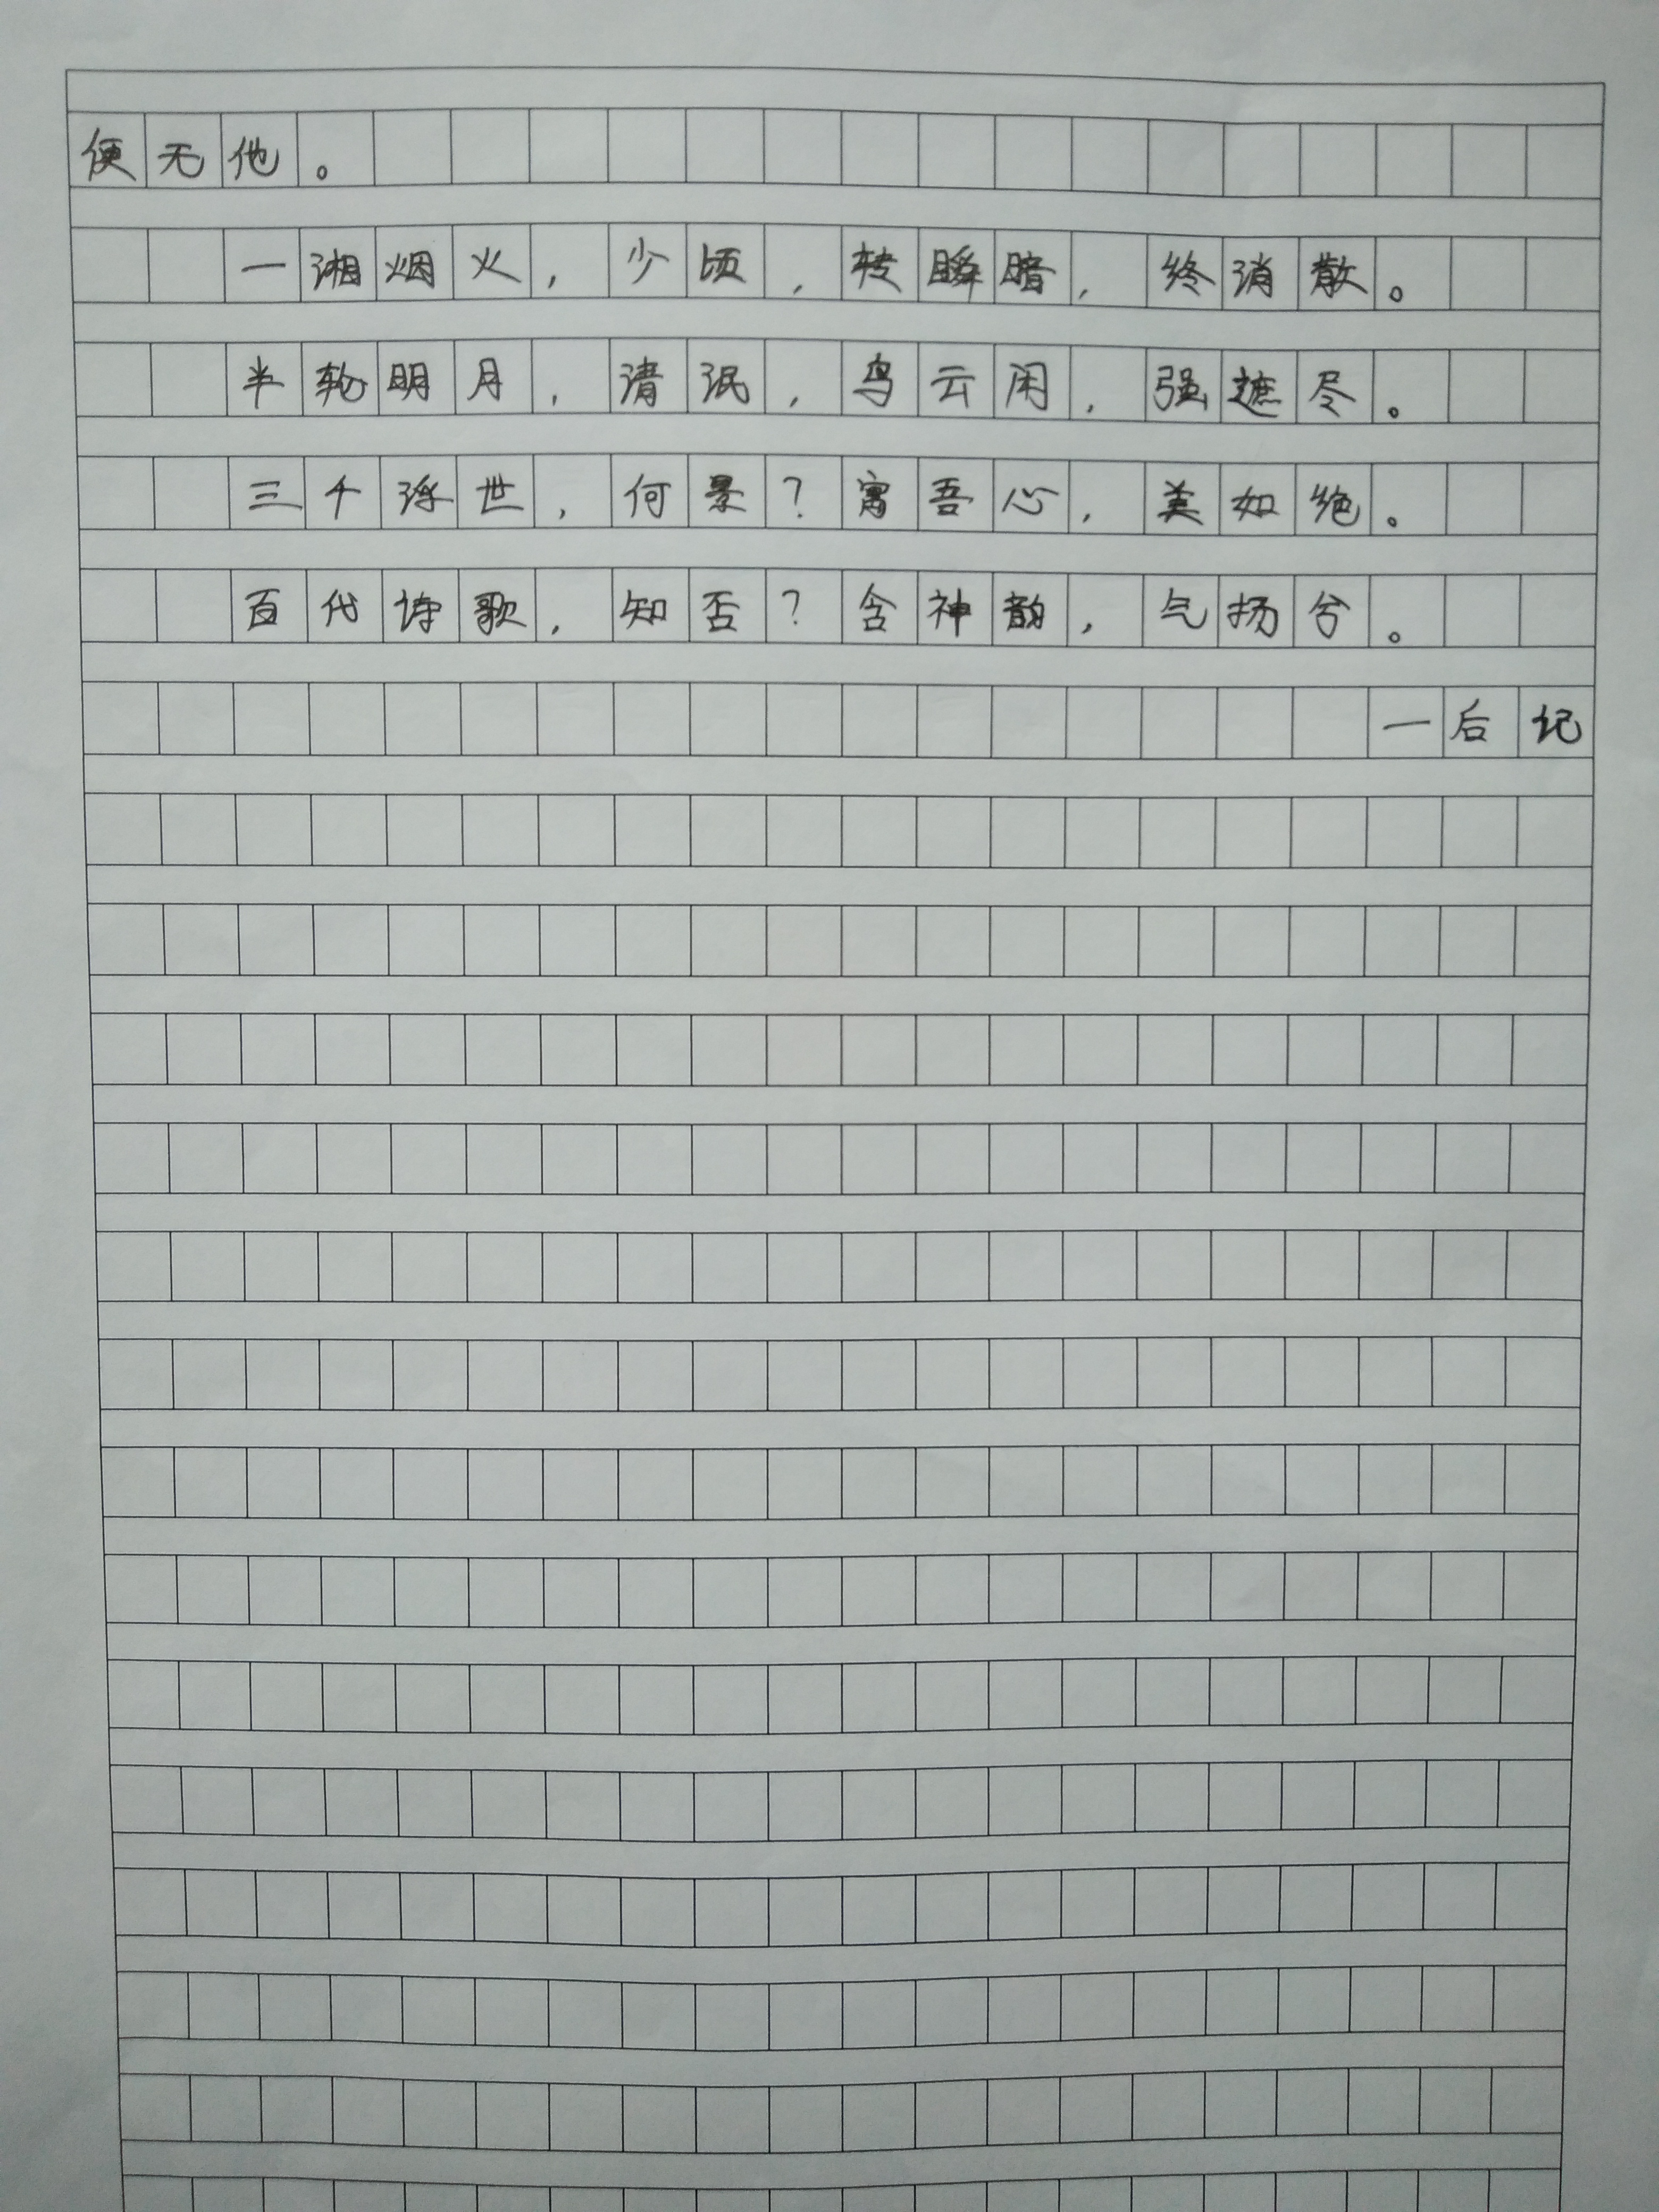 便无他。
一湘烟火，少顷，转瞬暗，终消散。
半轮明月，清泯，乌云闲，强遮尽。
三千浮世，何景？寓吾心，美如绝。
百代诗歌，知否？含神韵，气扬兮。
一后记